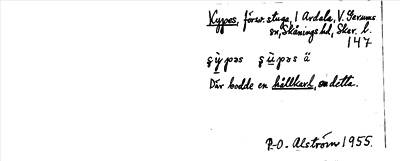 Kypes, försv. stuga, i Ardala, V. Gerums
sn, Skånings hd, Skar. l.
147
ꞩỳpəs ꞩùpəs ä
Där bodde en hållkarl, en detta.
R.-O. Alström 1955.